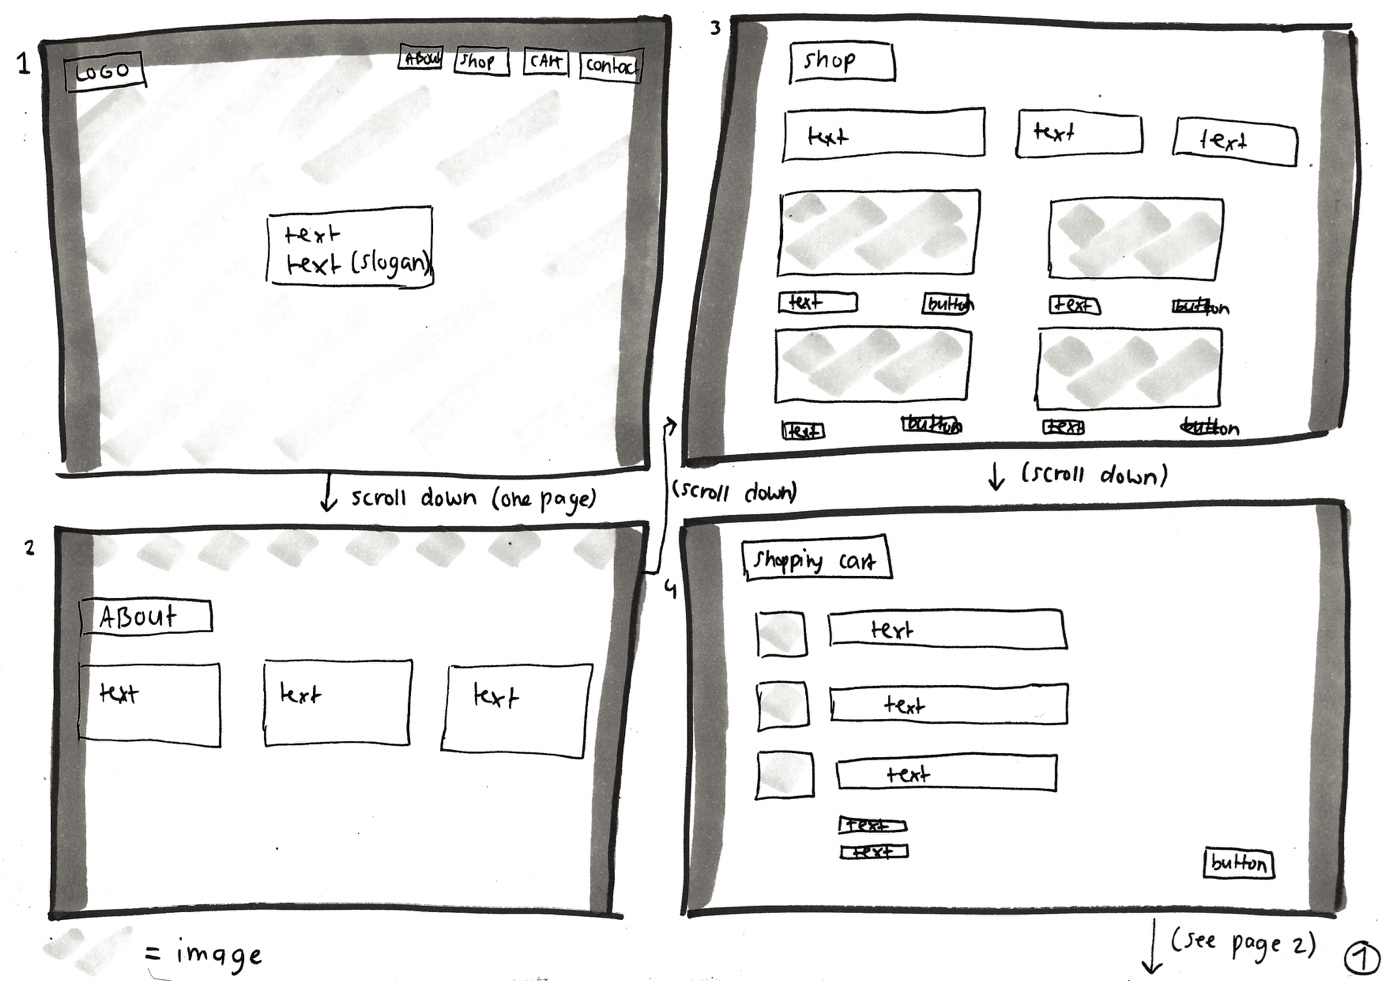 1
LOGO
ABout
shop
CArt
contact
text
text (slogan)
scroll down (one page)
2
ABout
text
text
text
= image
(scroll down)
3
shop
text
text
text
text
button
text
button
text
button
text
button
(scroll down)
4
shopping cart
text
text
text
text
text
button
(see page 2)
1